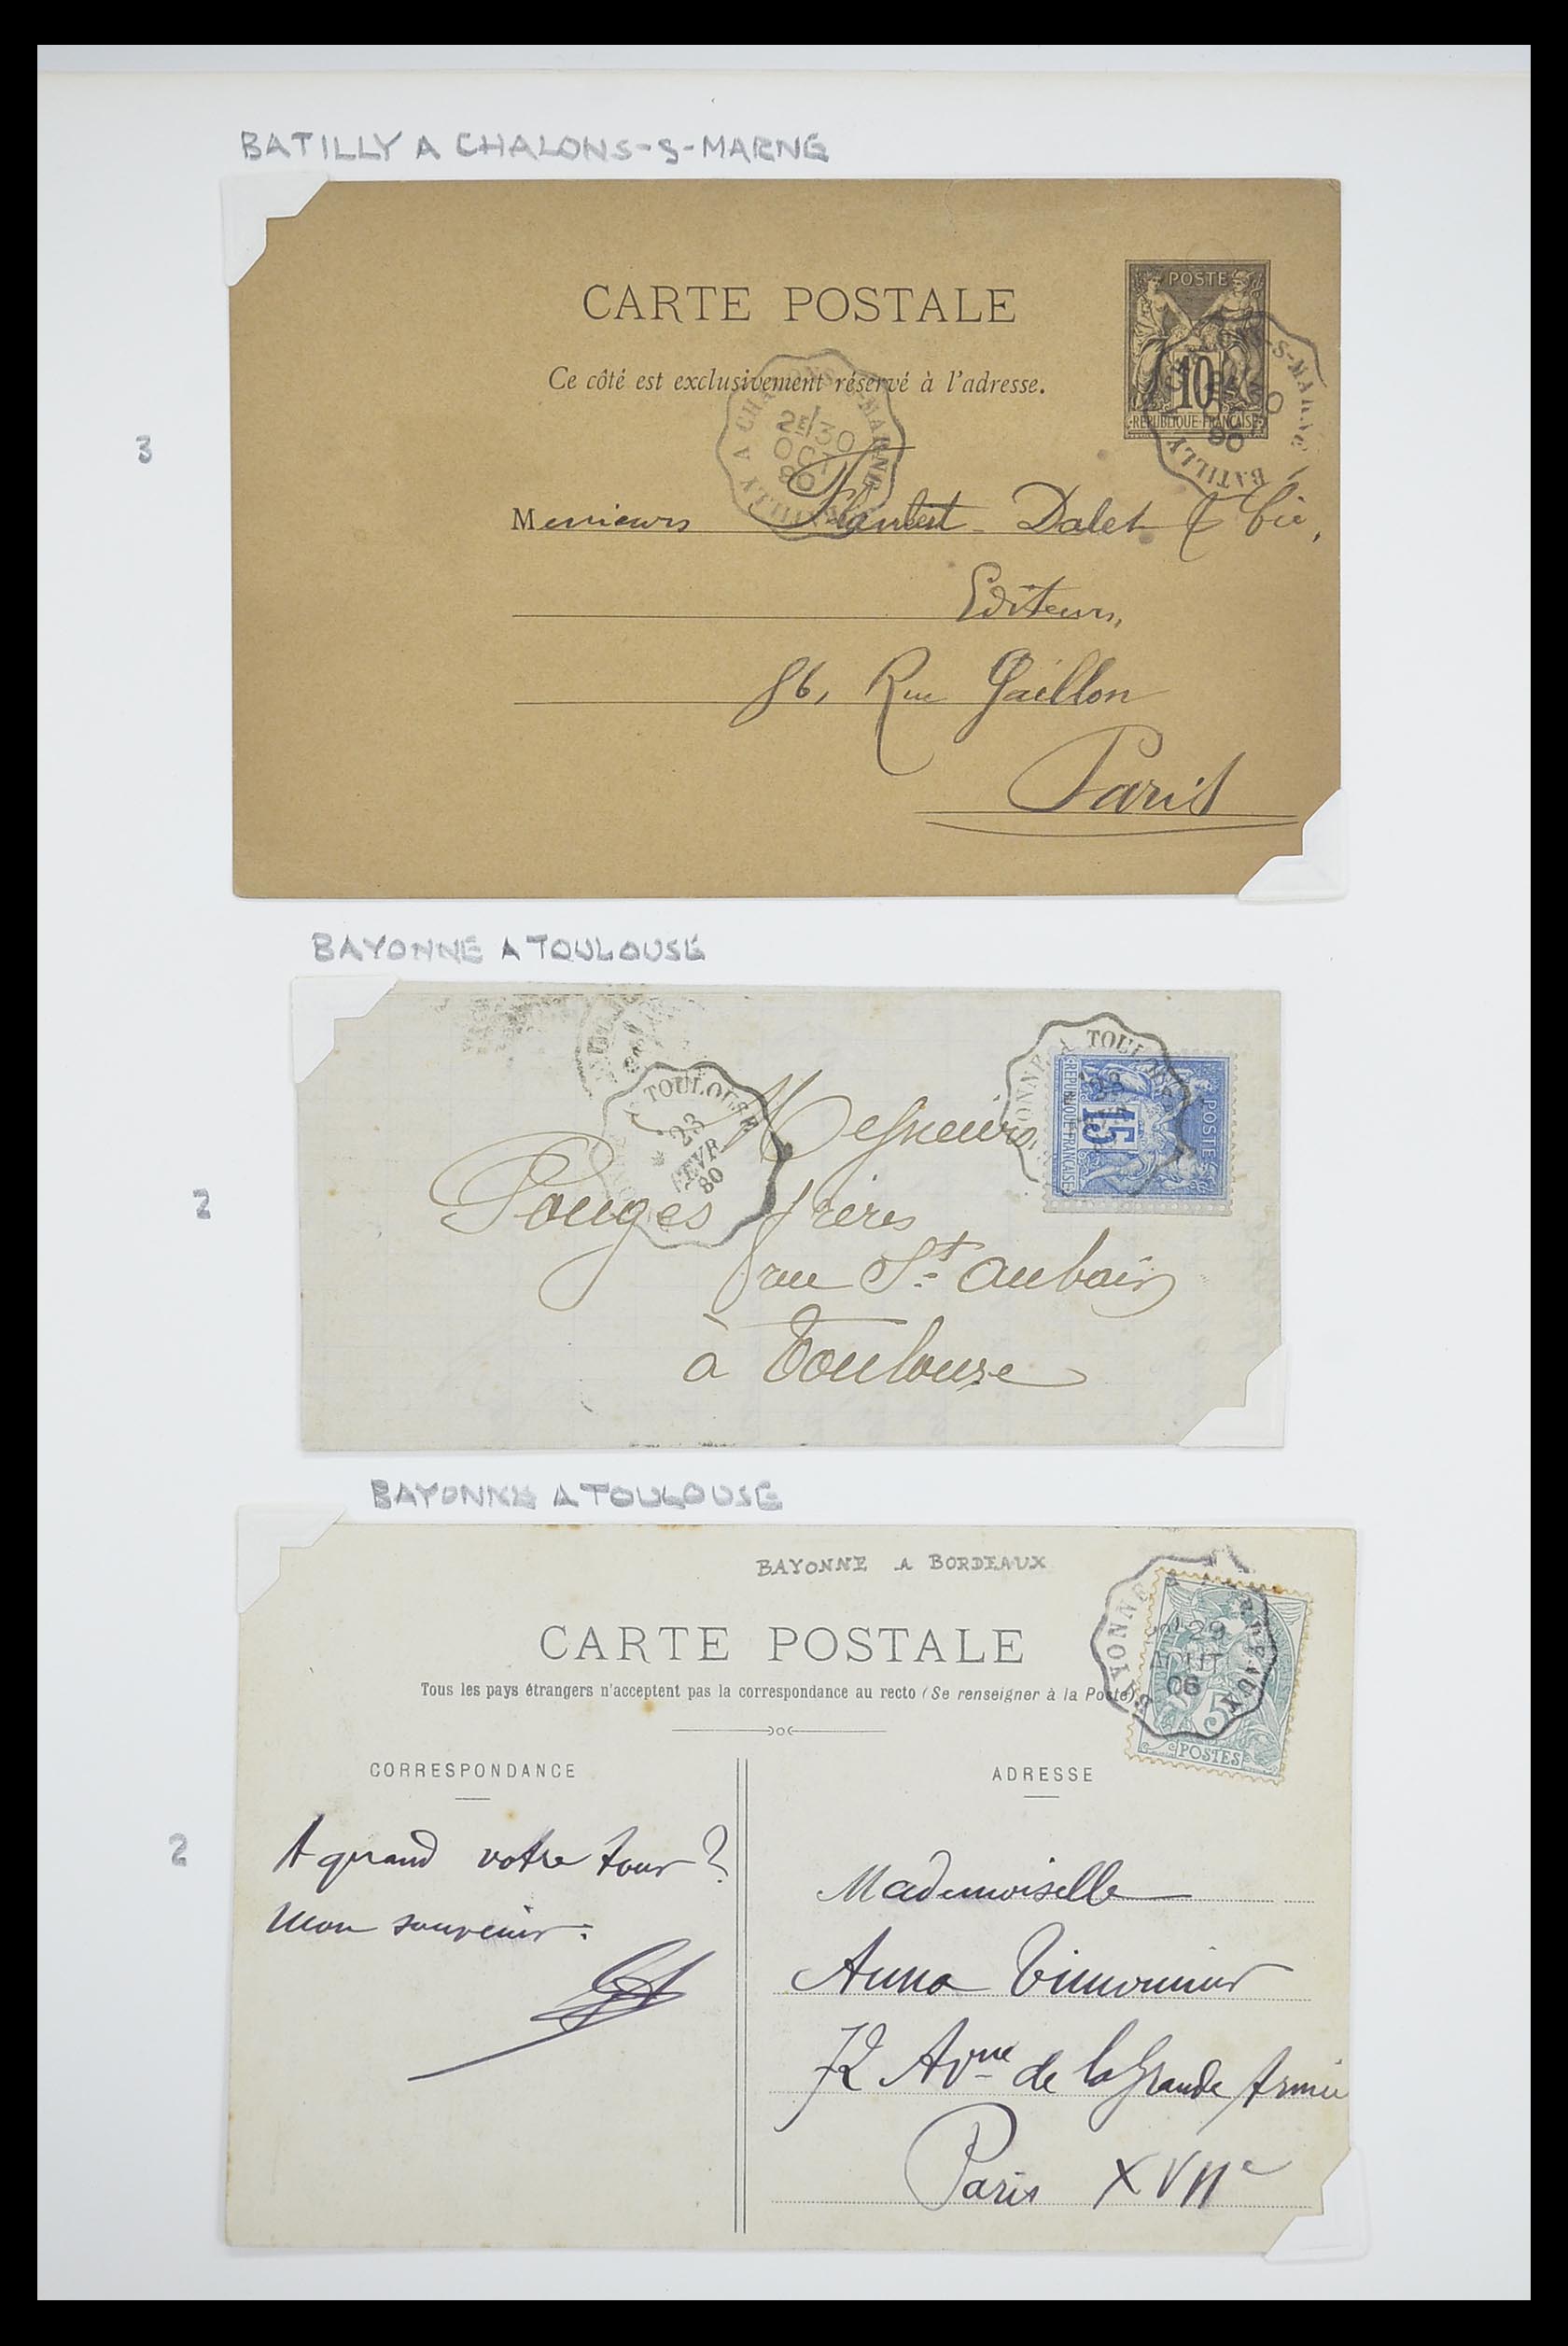 BATILLY A CHALONS-S-MARNE
CARTE POSTALE
Ce côté est exclusivement réservé à l'adresse.
POSTE
10
REPUBLIQUE FRANÇAISE
BATILLY A CHALONS-S-MARNE
2E/30
OCT
90
BATILLY S-MARNE
30
90
3
Messieurs Dalet & Cie,
Editeurs,
86, Rue Gaillon
Paris
BAYONNE A TOULOUSE
A TOULOUSE
23
FEVR
80
ONNE A TOUL
POSTE
15
REPUBLIQUE FRANÇAISE
2
Messieurs
Pouges frères
rue St Aubain
à Toulouse
BAYONNE A TOULOUSE
BAYONNE A BORDEAUX
CARTE POSTALE
Tous les pays étrangers n'acceptent pas la correspondance au recto (Se renseigner à la Poste)
YONNE
29
AOUT
06
5
POSTES
CORRESPONDANCE
ADRESSE
2
A quand votre tour?
Mon souvenir.
Mademoiselle
Anna
72 Avnue de la Grande Armée
Paris XVIIe